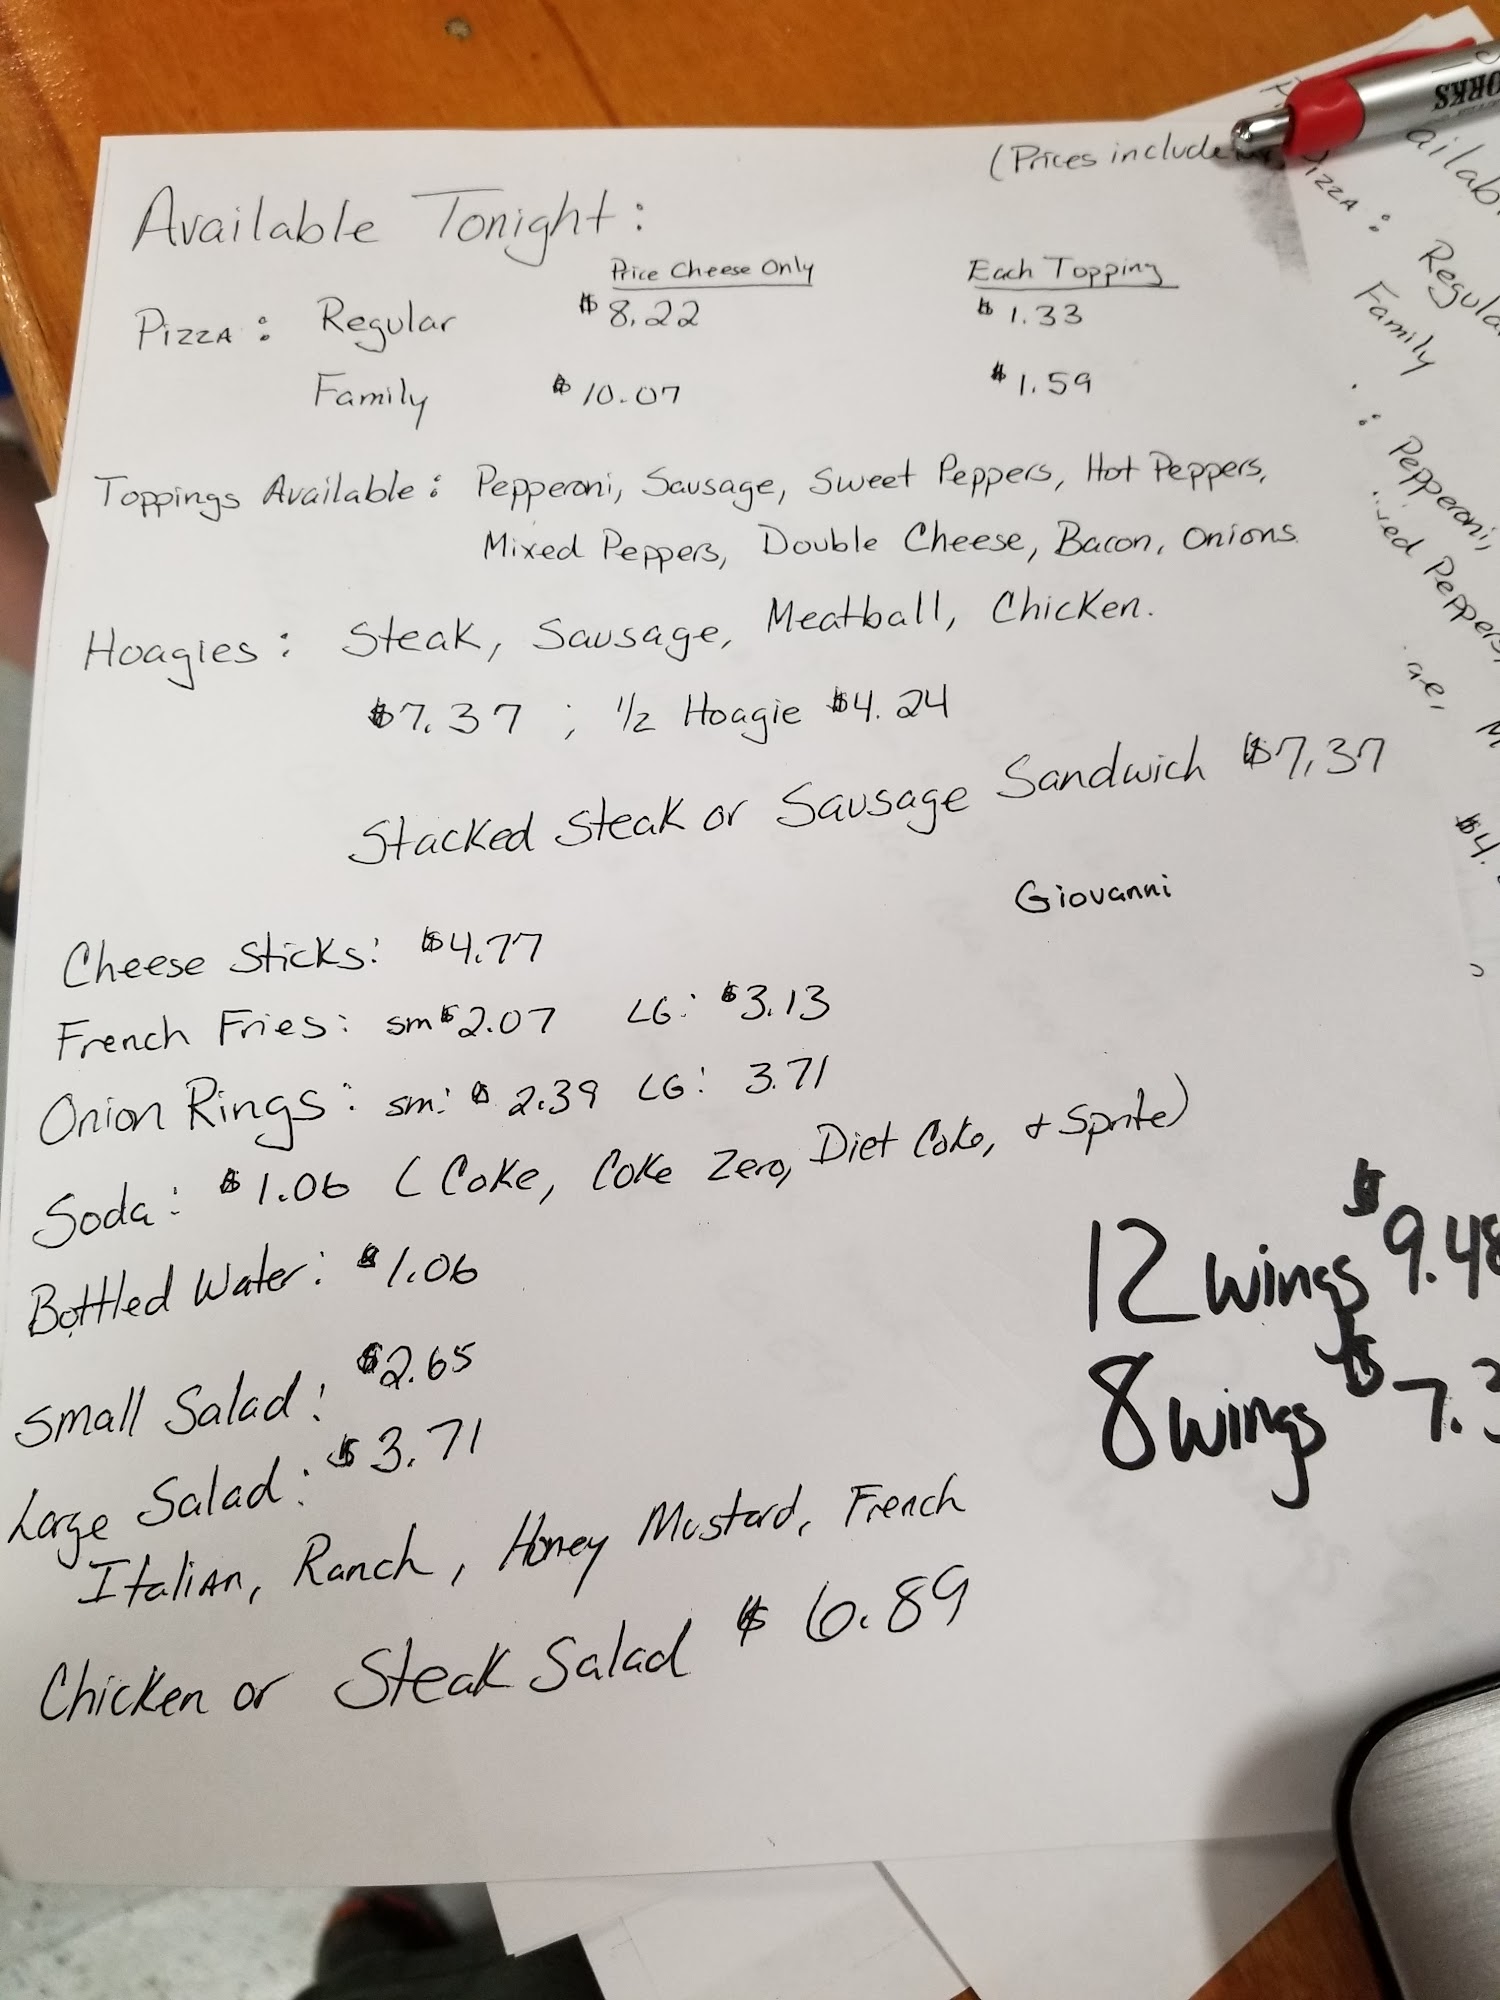 (Prices include
Available Tonight:
Price Cheese Only Each Topping
Pizza: Regular $8.22 $1.33
Family $10.07 $1.59
Toppings Available: Pepperoni, Sausage, Sweet Peppers, Hot Peppers,
Mixed Peppers, Double Cheese, Bacon, Onions.
Hoagies: Steak, Sausage, Meatball, Chicken.
$7.37 ; 1/2 Hoagie $4.24
Stacked Steak or Sausage Sandwich $7.37
Giovanni
Cheese Sticks: $4.77
French Fries: sm $2.07 LG: $3.13
Onion Rings: sm: $2.39 LG: 3.71
Soda: $1.06 (Coke, Coke Zero, Diet Coke, + Sprite)
Bottled Water: $1.06
Small Salad: $2.65
Large Salad: $3.71
Italian, Ranch, Honey Mustard, French
Chicken or Steak Salad $6.89
12 wings $9.48
8 wings $7.3
ORKS
ailab
Pizza: Regula
Family
: Pepperoni,
xed Peppers,
ge, M
$4.